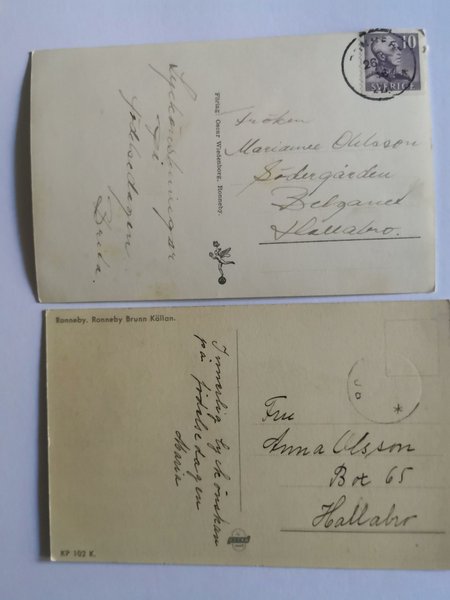 10
SVERIGE
Lyckönskningar
på
födelsedagen.
Förlag: Oscar Wiedenborg, Ronneby.
Fröken
Marianne Ohlsson
Södergården
Belganet
Hallabro.
Ronneby. Ronneby Brunn Källan.
Innerlig lyckönskan
på födelsedagen
Maria
Fru
Anna Olsson
Box 65
Hallabro
KP 102 K.